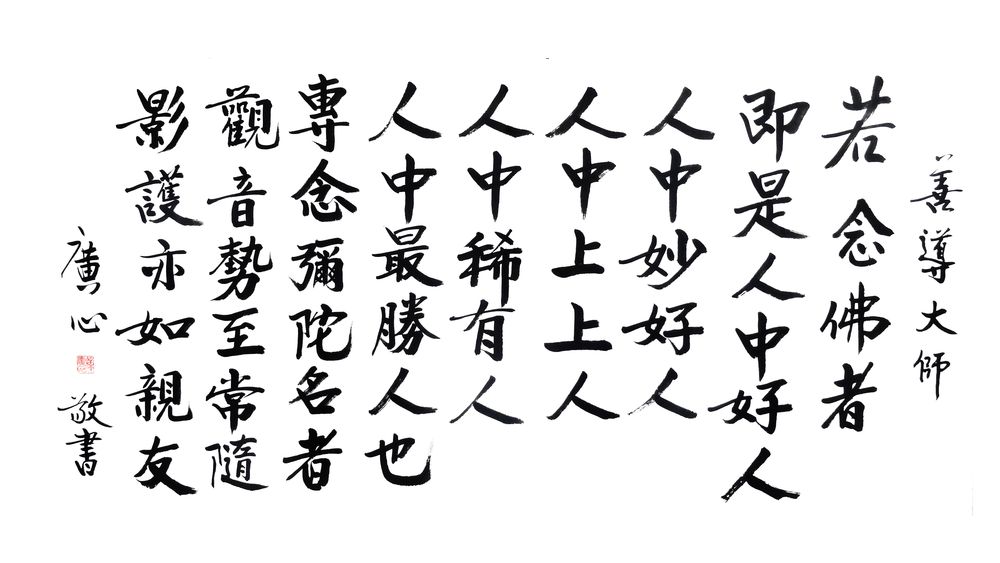 善導大師
若念佛者
即是人中好人
人中妙好人
人中上上人
人中稀有人
人中最勝人也
專念彌陀名者
觀音勢至常隨
影護亦如親友
廣心敬書